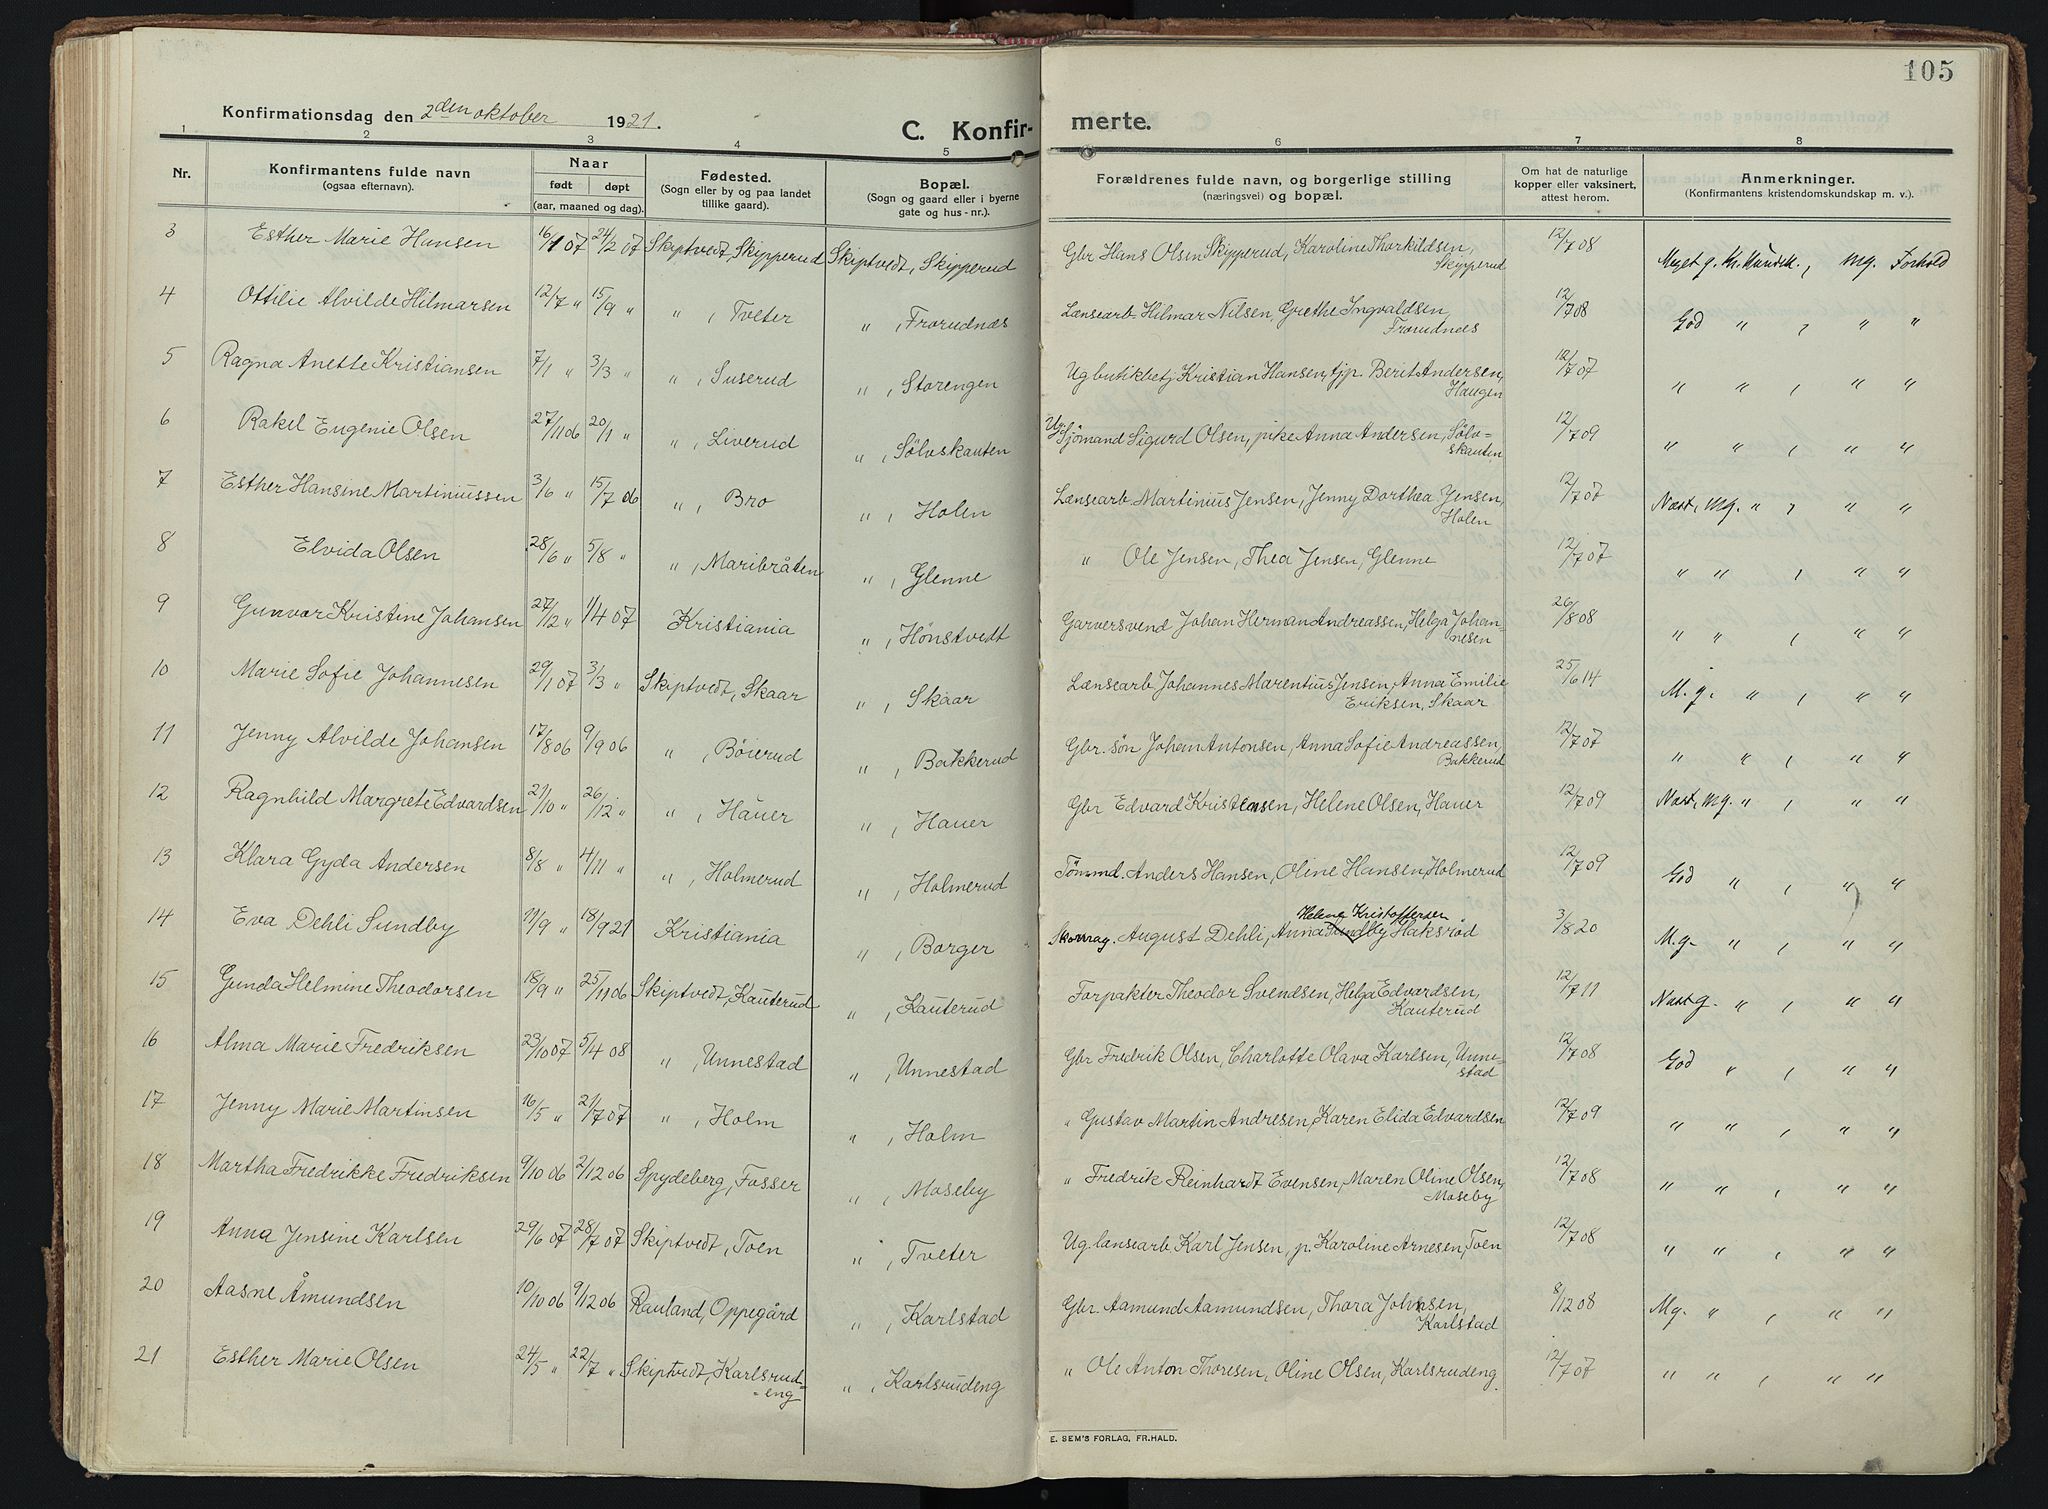 105
Konfirmationsdag den 2den oktober 1921.
C. Konfir- merte.
1 2 3 4 5 6 7 8
Nr.
Konfirmantens fulde navn
(ogsaa efternavn).
Naar
født døpt
(aar, maaned og dag).
Fødested.
(Sogn eller by og paa landet
tillike gaard).
Bopæl.
(Sogn og gaard eller i byerne
gate og hus-nr.).
Forældrenes fulde navn, og borgerlige stilling
(næringsvei) og bopæl.
Om hat de naturlige
kopper eller vaksinert,
attest herom.
Anmerkninger.
(Konfirmantens kristendomskundskap m. v.).
3 Esther Marie Hansen 16/1 07 24/2 07 Skiptvedt, Skipperud Skiptvedt, Skipperud Gbr Hans Olsen Skipperud, Karoline Thorkildsen, 12/7 08 Meget g. Kr. Kundsk., mg. Forhold
Skipperud
4 Ottilie Alvilde Hilmarsen 12/7 " 15/9 " " , Tveter " , Frorudnæs Lænsearb. Hilmar Nilsen, Grethe Ingvaldsen, 12/7 08 God " , " "
Frorudnæs
5 Ragna Anette Kristiansen 7/1 " 3/3 " " , Suserud " , Storengen Ug butikbetj Kristian Hansen, tjp. Berit Andersen, 12/7 07 " " , " "
Haugen
6 Rakel Eugenie Olsen 27/11 06 20/1 " " , Liverud " , Sölvskauten Ug Sjömand Sigurd Olsen, pike Anna Andersen, Sölv= 12/7 09 " " , " "
skauten
7 Esther Hansine Martiniussen 3/6 " 15/7 06 " , Bro " , Holen Lænsearb. Martinius Jensen, Jenny Dorthea Jensen, 12/7 07 Næst, mg. " , " "
Holen
8 Elvida Olsen 28/6 " 5/8 " " , Maribråten " , Glenne " Ole Jensen, Thea Jensen, Glenne 12/7 07 " " , " "
9 Gunvor Kristine Johansen 27/12 " 1/4 07 Kristiania " , Hönstvedt Garversvend Johan Herman Andreassen, Helga Johan= 26/8 08 " " , " "
nesen
10 Marie Sofie Johannesen 29/1 07 3/3 " Skiptvedt, Skaar " , Skaar Lænsearb Johannes Marentius Jensen, Anna Emilie 25/6 14 M.g. " , " "
Eriksen, Skaar
11 Jenny Alvilde Johansen 17/8 06 9/9 06 " , Böierud " , Bakkerud Gbr. sön Johan Antonsen, Anna Sofie Andreassen, 12/7 07 " " , " "
Bakkerud
12 Ragnhild Margrete Edvardsen 21/10 " 26/12 " " , Hauer " , Hauer Gbr Edvard Kristensen, Helene Olsen, Hauer 12/7 09 Næst, mg. " , " "
13 Klara Gyda Andersen 8/8 " 4/11 " " , Holmerud " , Holmerud Tömmd. Anders Hansen, Oline Hansen, Holmerud 12/7 09 God " , " "
14 Eva Dehli Sundby 11/9 " 18/9 21 Kristiania " , Borger Skomag. August Dehli, Anna Sundby Haksröd 3/8 20 M.g. " , " "
Helene Kristoffersen
15 Gunda Helmine Theodorsen 18/9 " 25/11 06 Skiptvedt, Kauterud " , Kauterud Forpakter Theodor Svendsen, Helga Edvardsen, 12/7 11 Næst g. " , " "
Kauterud
16 Alma Marie Fredriksen 23/10 07 5/4 08 " , Unnestad " , Unnestad Gbr Fredrik Olsen, Charlotte Olava Karlsen, Unne= 12/7 08 God " , " "
stad
17 Jenny Marie Martinsen 16/5 " 21/7 07 " , Holm " , Holm " Gustav Martin Andresen, Karen Elida Edvardsen 12/7 09 " " , " "
18 Martha Fredrikke Fredriksen 9/10 06 2/12 06 Spydeberg, Fosser " , Moseby " Fredrik Reinhardt Evensen, Maren Oline Olsen, 12/7 08 " " , " "
Moseby
19 Anna Jensine Karlsen 29/6 07 28/7 07 Skiptvedt, Toen " , Tveter Ug. lænsearb Karl Jensen, p. Karoline Arnesen, Toen 12/7 08 " " , " "
20 Aasne Åmundsen 10/10 06 9/12 06 Rauland, Oppegård " , Karlstad Gbr. Aamund Aamundsen, Thora Johnsen, 8/12 08 Mg. " , " "
Karlstad
21 Esther Marie Olsen 24/5 " 22/7 " Skiptvedt, Karlsrud= " , Karlsrudeng " Ole Anton Thoresen, Oline Olsen, Karlsrudeng. 12/7 07 " " , " "
=eng
E. SEM'S FORLAG, FR.HALD.